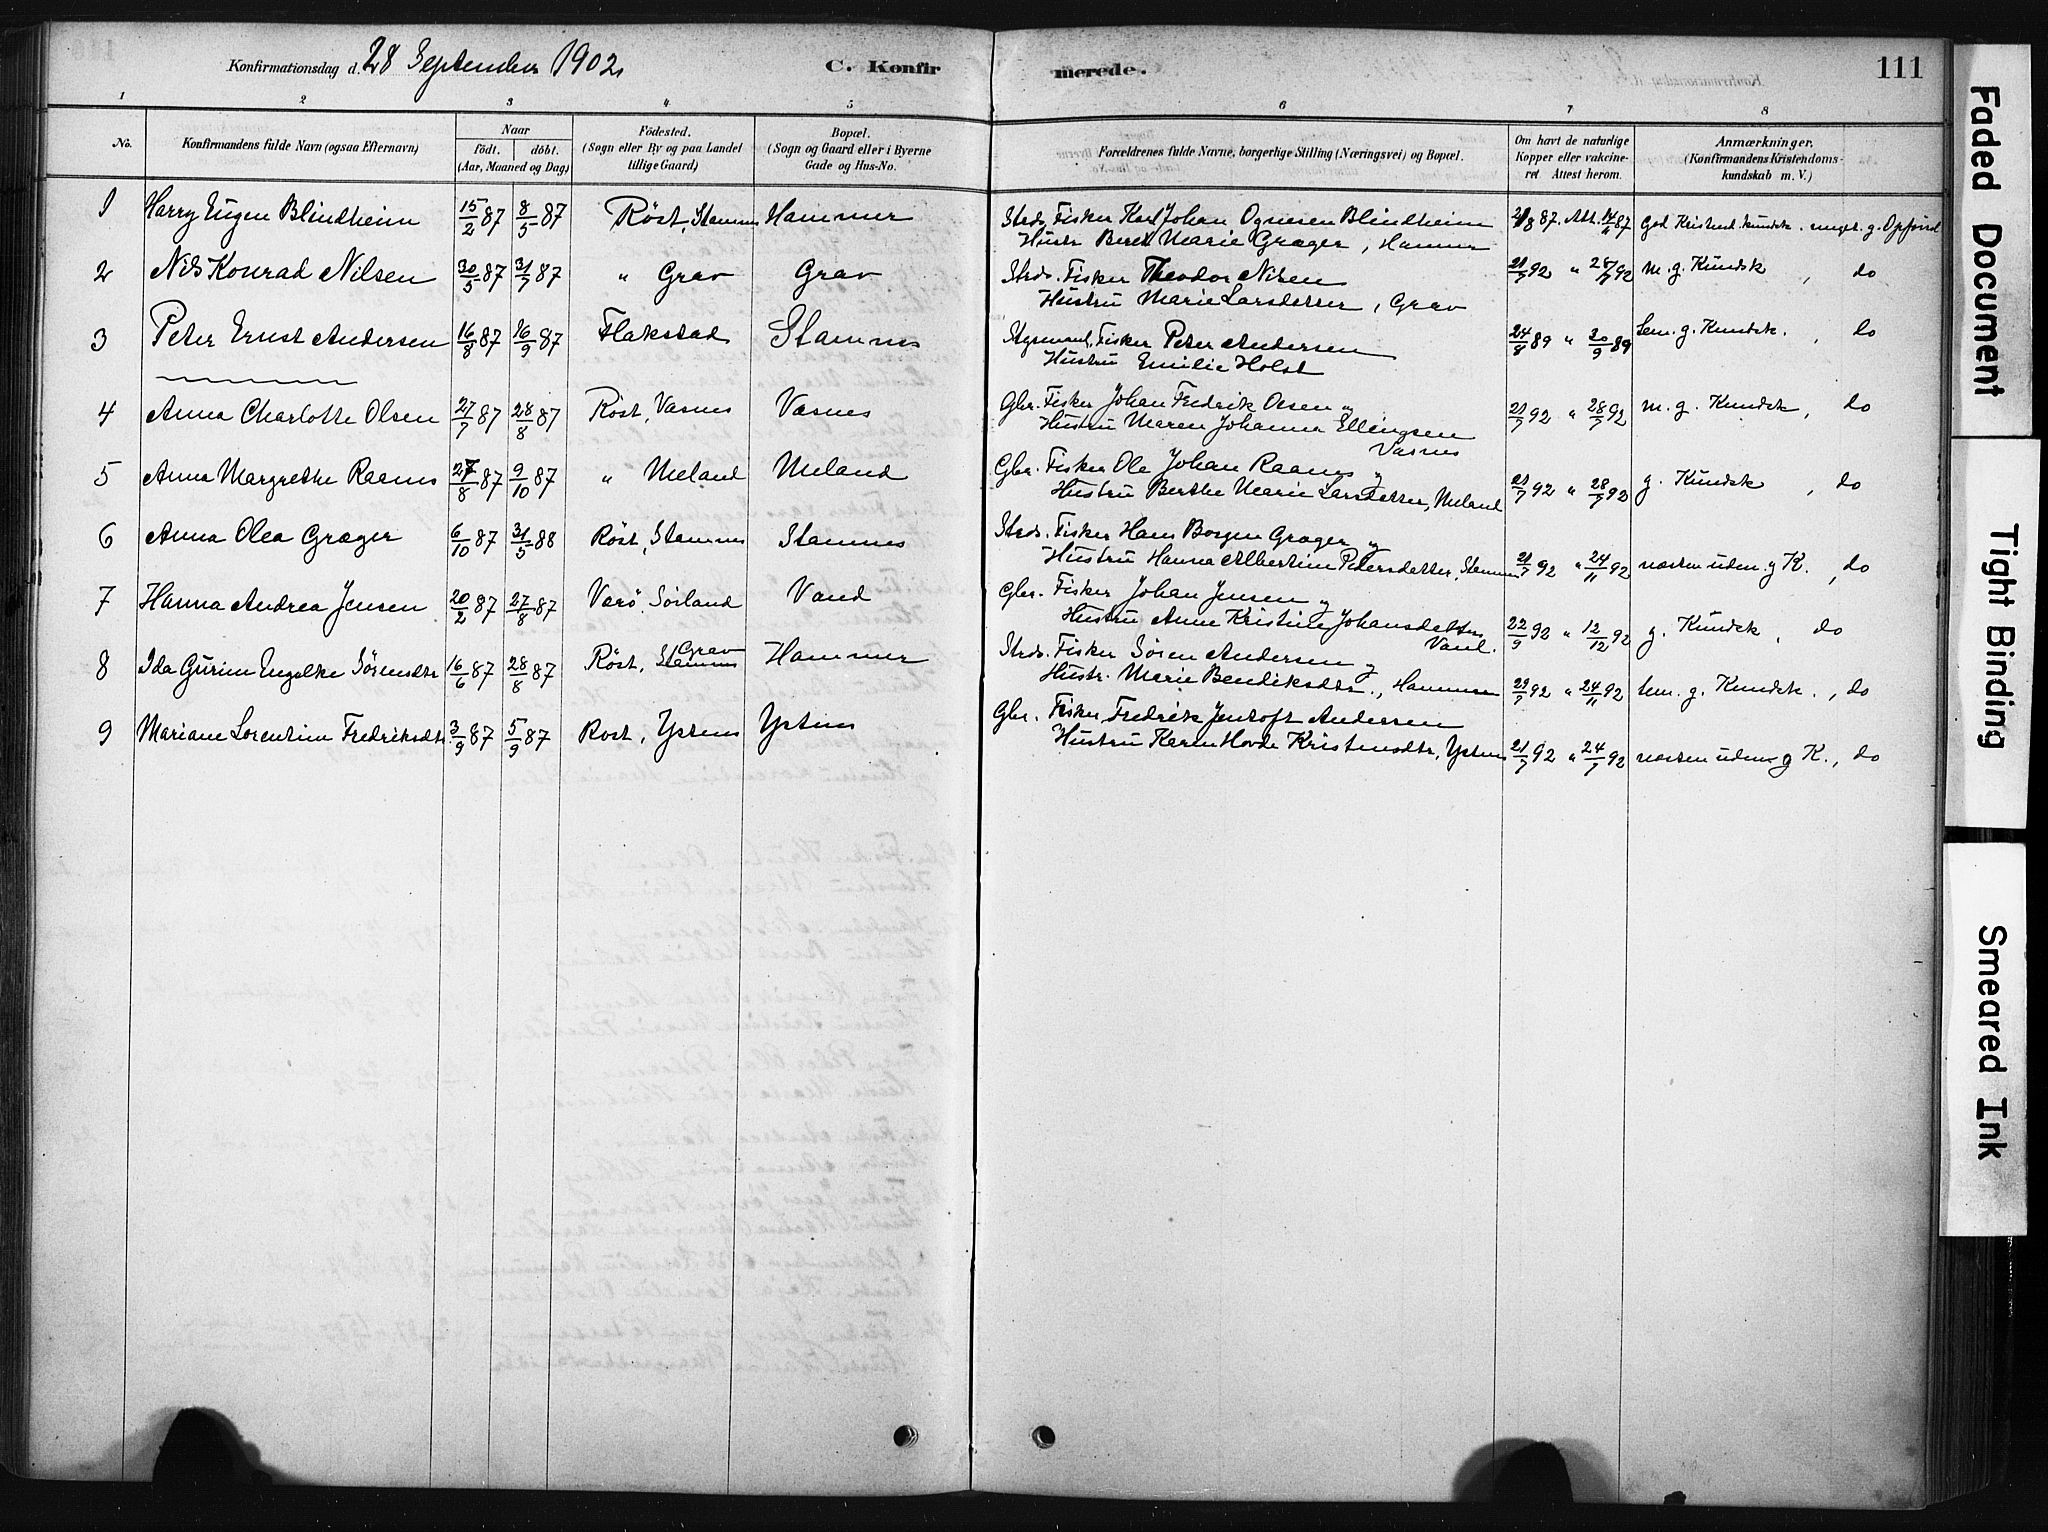 Konfirmationsdag d. 28 September 1902.
C. Konfirmerede.
111
1 2 3 4 5 6 7 8
No.
Konfirmandens fulde Navn (ogsaa Efternavn)
Naar
födt. döbt.
(Aar, Maaned og Dag)
Födested.
(Sogn eller By og paa Landet
tillige Gaard)
Bopæl.
(Sogn og Gaard eller i Byerne
Gade og Hus-No.
Forældrenes fulde Navne, borgerlige Stilling (Næringsvei) og Bopæl.
Om havt de naturlige
Kopper eller vakcine-
ret Attest herom.
Anmærkninger.
(Konfirmandens Kristendoms-
kundskab m. V.)
1 Harry Eugen Blindheim 15/2 87 8/5 87 Röst, Stamnes Hammer Strds. Fisker Karl Johan Blindheim 87. Att. 87 God Kristend. kundsk. meget g. Opförsel
Hustr Beret Marie Græger, Hammer
2 Nils Konrad Nilsen 30/5 87 31/7 87 " Grav Grav Strds. Fisker Theodor Nilsen 21/7 92 " 28/7 92 m. g. Kundsk , do
Hustru Marie Larsdatter, Grav
3 Peter Ernst Andersen 16/8 87 16/9 87 Flakstad Stamnes Fisker Peter Andersen 24/8 89 " 30/9 89 tem. g. Kundsk. , do
Hustru Emilie Holst
4 Anna Charlotte Olsen 27/7 87 28/8 87 Röst, Vasnes Vasnes Gbr. Fisker Johan Fredrik Olsen og 21/7 92 " 28/7 92 m. g. Kundsk, do
Hustru Maren Johanna Ellingsen
Vasnes
5 Anna Margrethe Raanes 27/8 87 9/10 87 " Meland Meland Gbr. Fisker Ole Johan Raanes og 21/7 92 " 28/7 92 g. Kundsk , do
Hustru Berthe Marie Larsdatter, Meland
6 Anna Olea Græger 6/10 87 31/5 88 Röst, Stamnes Stamnes Strds. Fisker Hans Borgen Græger og
Hustru Hanna Albertine Pedersdatter, Stamnes 21/7 92 " 24/11 92 næsten uden g K. , do
7 Hanna Andrea Jensen 20/2 87 27/8 87 Værö, Sörland Vand Gbr. Fisker Johan Jensen og
Hustru Anne Kristine Johansdatter 22/9 92 " 12/12 92 g. Kundsk , do
Vand.
8 Ida Gurine Engelke Sörensdtr 16/6 87 28/8 87 Röst, Grav Stamnes Hammer Strds. Fisker Sören Andersen og
Hustr. Marie Bendiksdtr., Hammer 92 " 24/11 92 tem. g. Kundsk. , do
9 Mariane Lorentine Fredriksdtr 3/9 87 5/9 87 Röst, Ystnes Ystnes Gbr. Fisker Fredrik Jentoft Andersen
Hustru Karen Hovda Kristensdtr, Ystnes 21/7 92 " 24/7 92 næsten uden g K. , do
Faded Document
Tight Binding
Smeared Ink